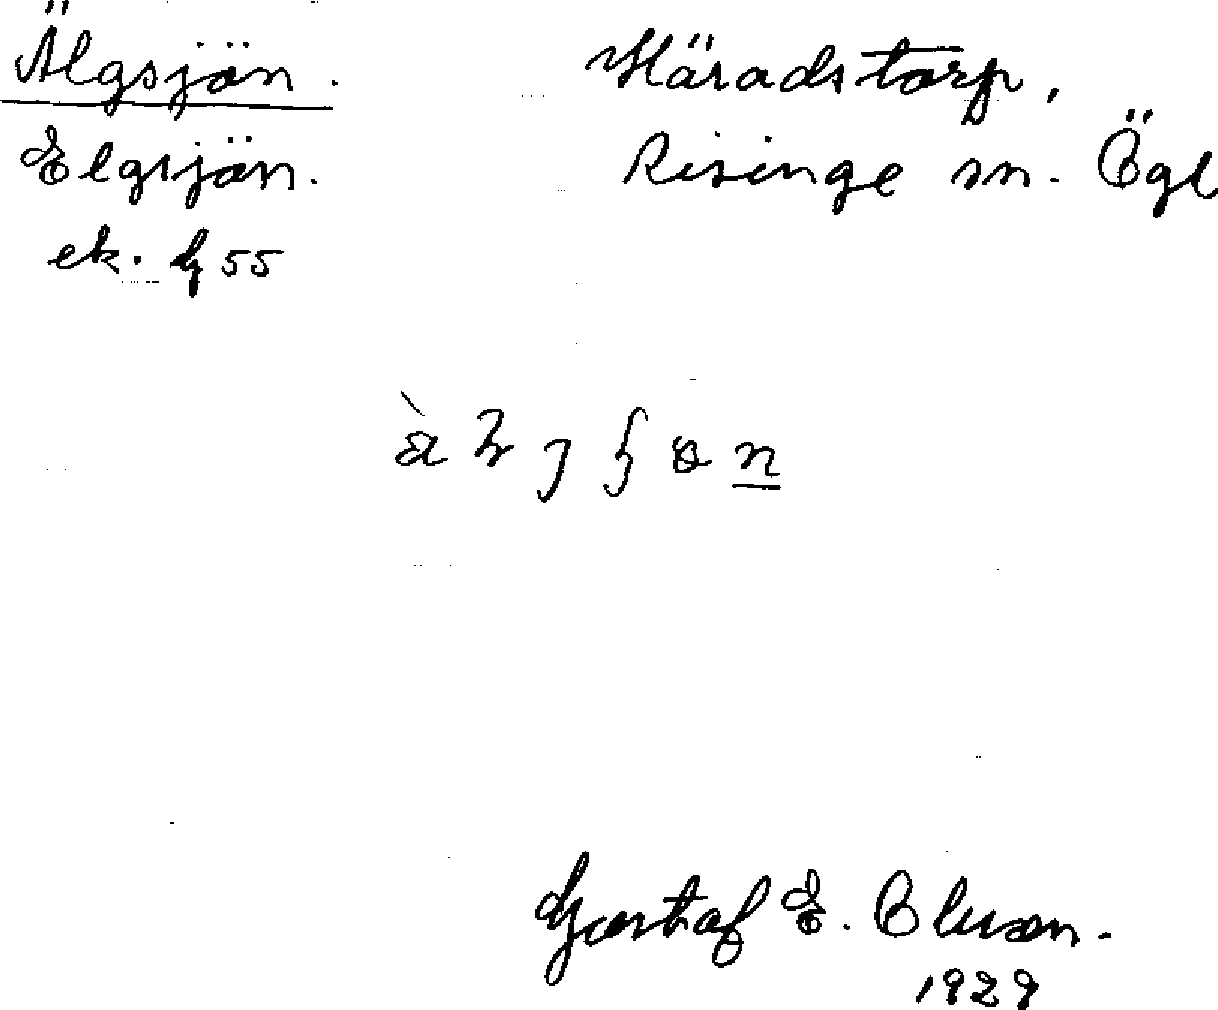 Älgsjön. Häradstorp,
Elgsjön. Risinge sn. Ögl
ek. G 55
Gustaf E. Olsson.
1929